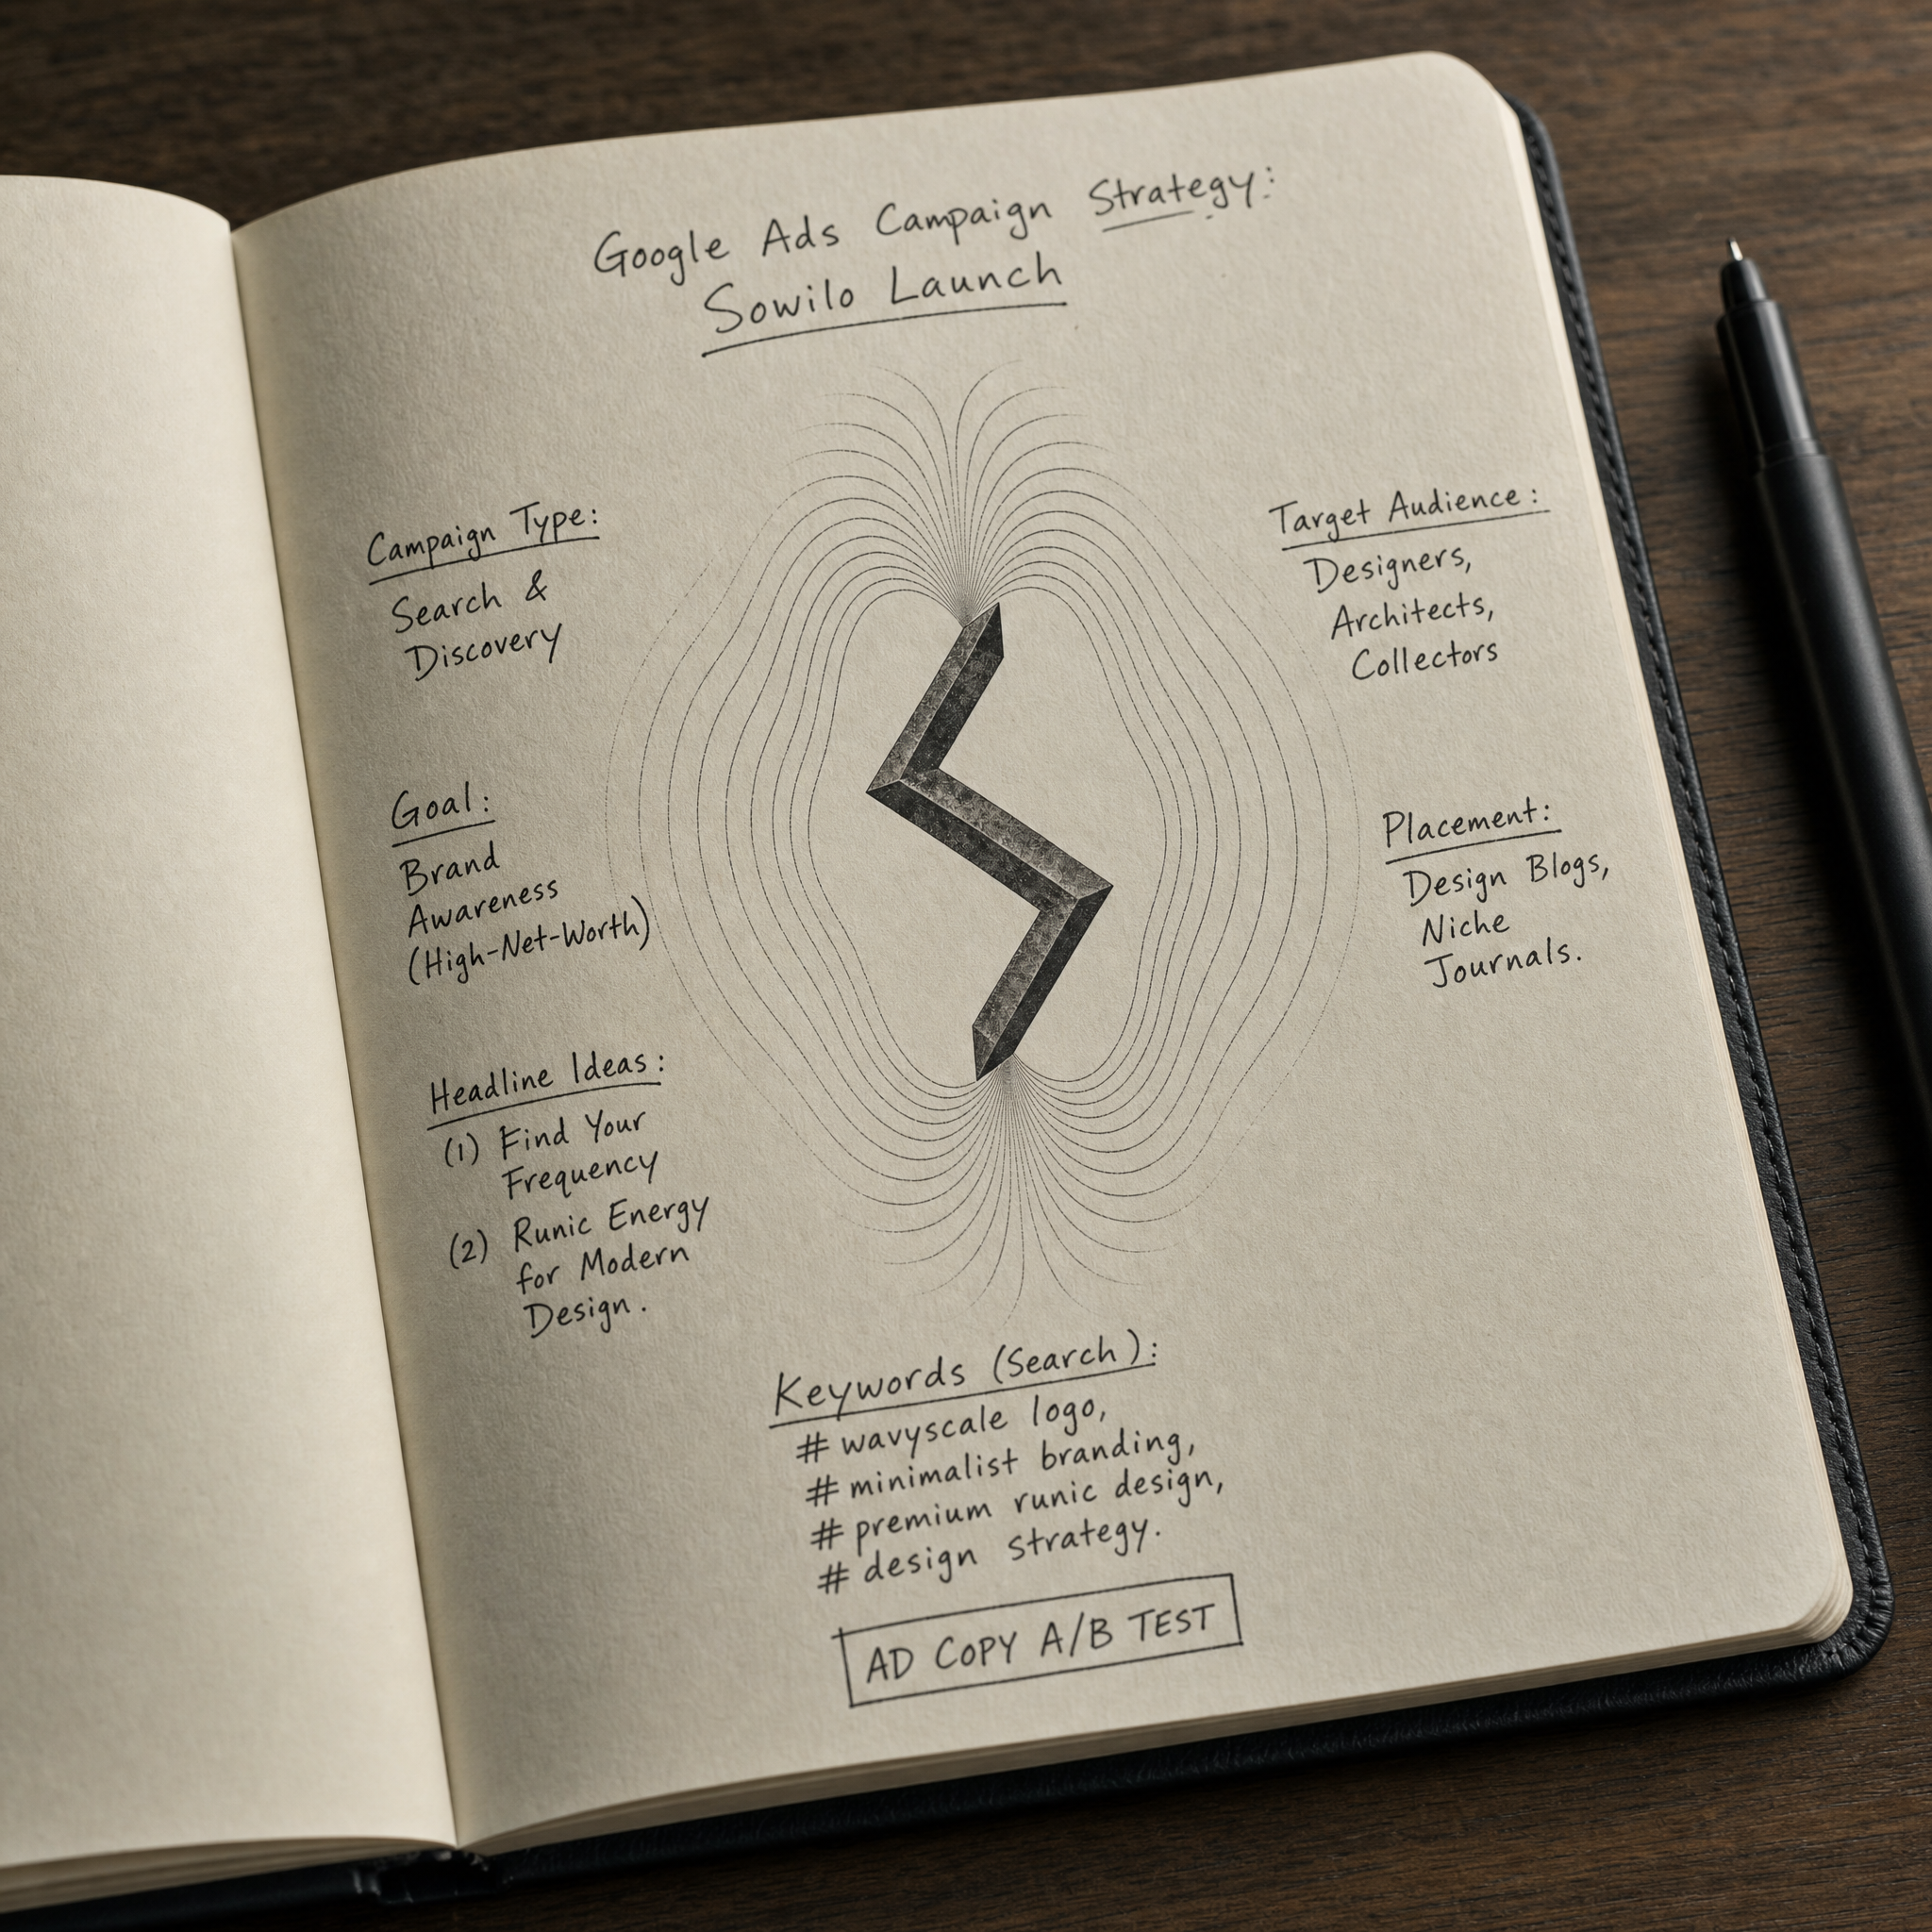 Google Ads Campaign Strategy:
Sowilo Launch
Campaign Type:
Search &
Discovery
Goal:
Brand
Awareness
(High-Net-Worth)
Headline Ideas:
(1) Find Your
Frequency
(2) Runic Energy
for Modern
Design.
Target Audience:
Designers,
Architects,
Collectors
Placement:
Design Blogs,
Niche
Journals.
Keywords (Search):
# wavyscale logo,
# minimalist branding,
# premium runic design,
# design strategy.
AD COPY A/B TEST